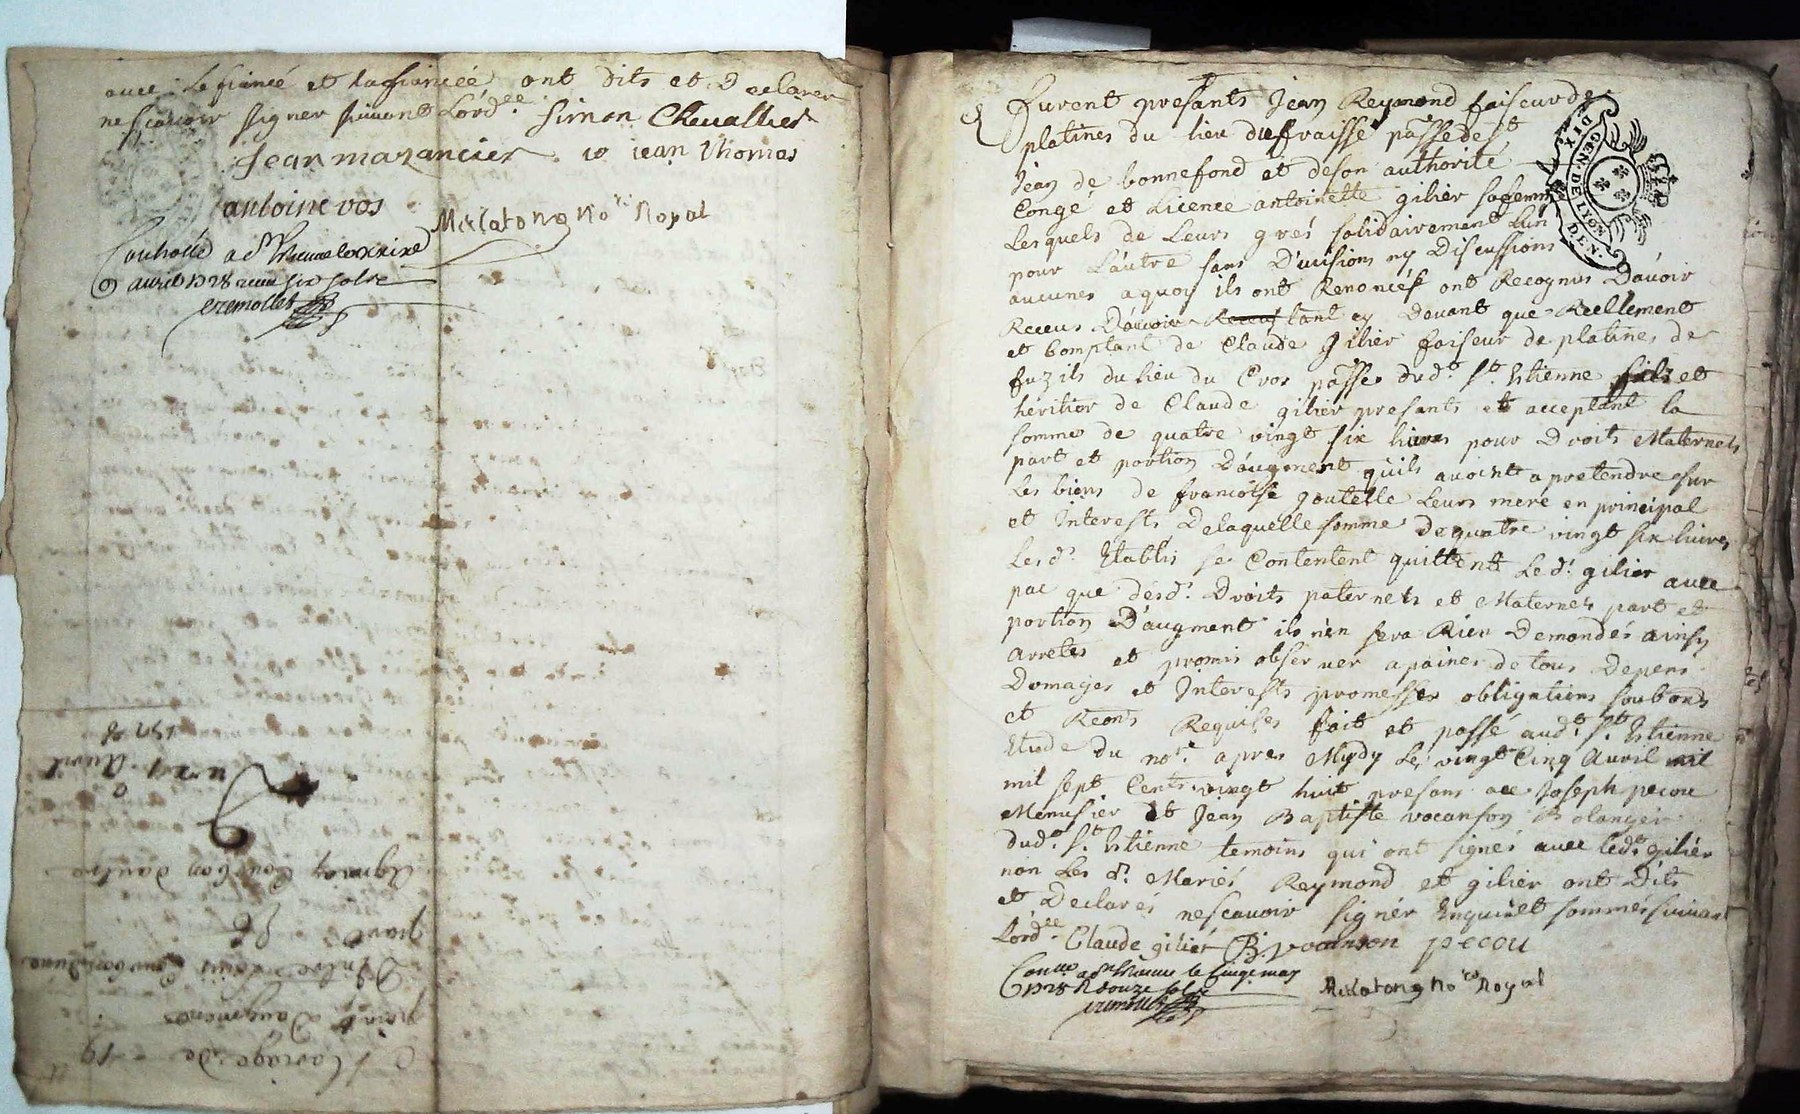 avec le fiancé et la fiancée ont dits et declarer
ne scavoir signer suivant Lórdee. Simon Chevallier
Jean marancier. jean thomas
antoine vos
avril 1728
cremollet
No.re Royal
1728
Avril
pour
Furent presants Jean Reymond faiseur de
platines du lieu du fraisse
Jean de bonnefond et de son authorité
Congé et Licence antoinette gilier sa femme
Lesquels de Leurs grés solidairement Lun
pour Láutre sans Division ny Discussions
aucunes a quoy ils ont Renoncés ont Recognus Dávoir
Receus Dávoir Receus tant cy Devant que Reellement
et Comptant de Claude Gilier faiseur de platines de
fuzils du lieu du Cros dud.t S.t Estienne fils et
heritier de Claude gilier presants et acceptant la
somme de quatre vingt six livres pour Droits Maternels
part et portion Dáugment quils avoint a pretendre sur
les biens de francoise goutelle Leurs mere en principal
et Interests Delaquelle somme de quatre vingt six livres
Lesd. Etablis se Contentent quittent Led. gilier avec
pac que désd. Droits paternels et Maternels part et
portion D'augment il n'en sera Rien Demondés ainsy
Arretés et promis observer a paines de tous Depens
Domages et Interests promesses obligations
et Reons Requises fait et passé aud.t S.t Estienne
Etude du no.re apres Mydy Le vingt Cinq Avril mil
mil sept Cents vingt huit presans Joseph pecou
Menusier et Jean Baptiste vocanson Bolanger
dud.t S.t Estienne temoins qui ont signés avec led.t gilier
non Les d. Mariés Reymond et gilier ont Dits
et Declarés ne scavoir signér Enquis et sommés suivant
Lórdee. Claude gilier B. vocanson pecou
1728 R douze sols
cremollet
No.re Royal
DIX
GEN. DE LYON
DEN.